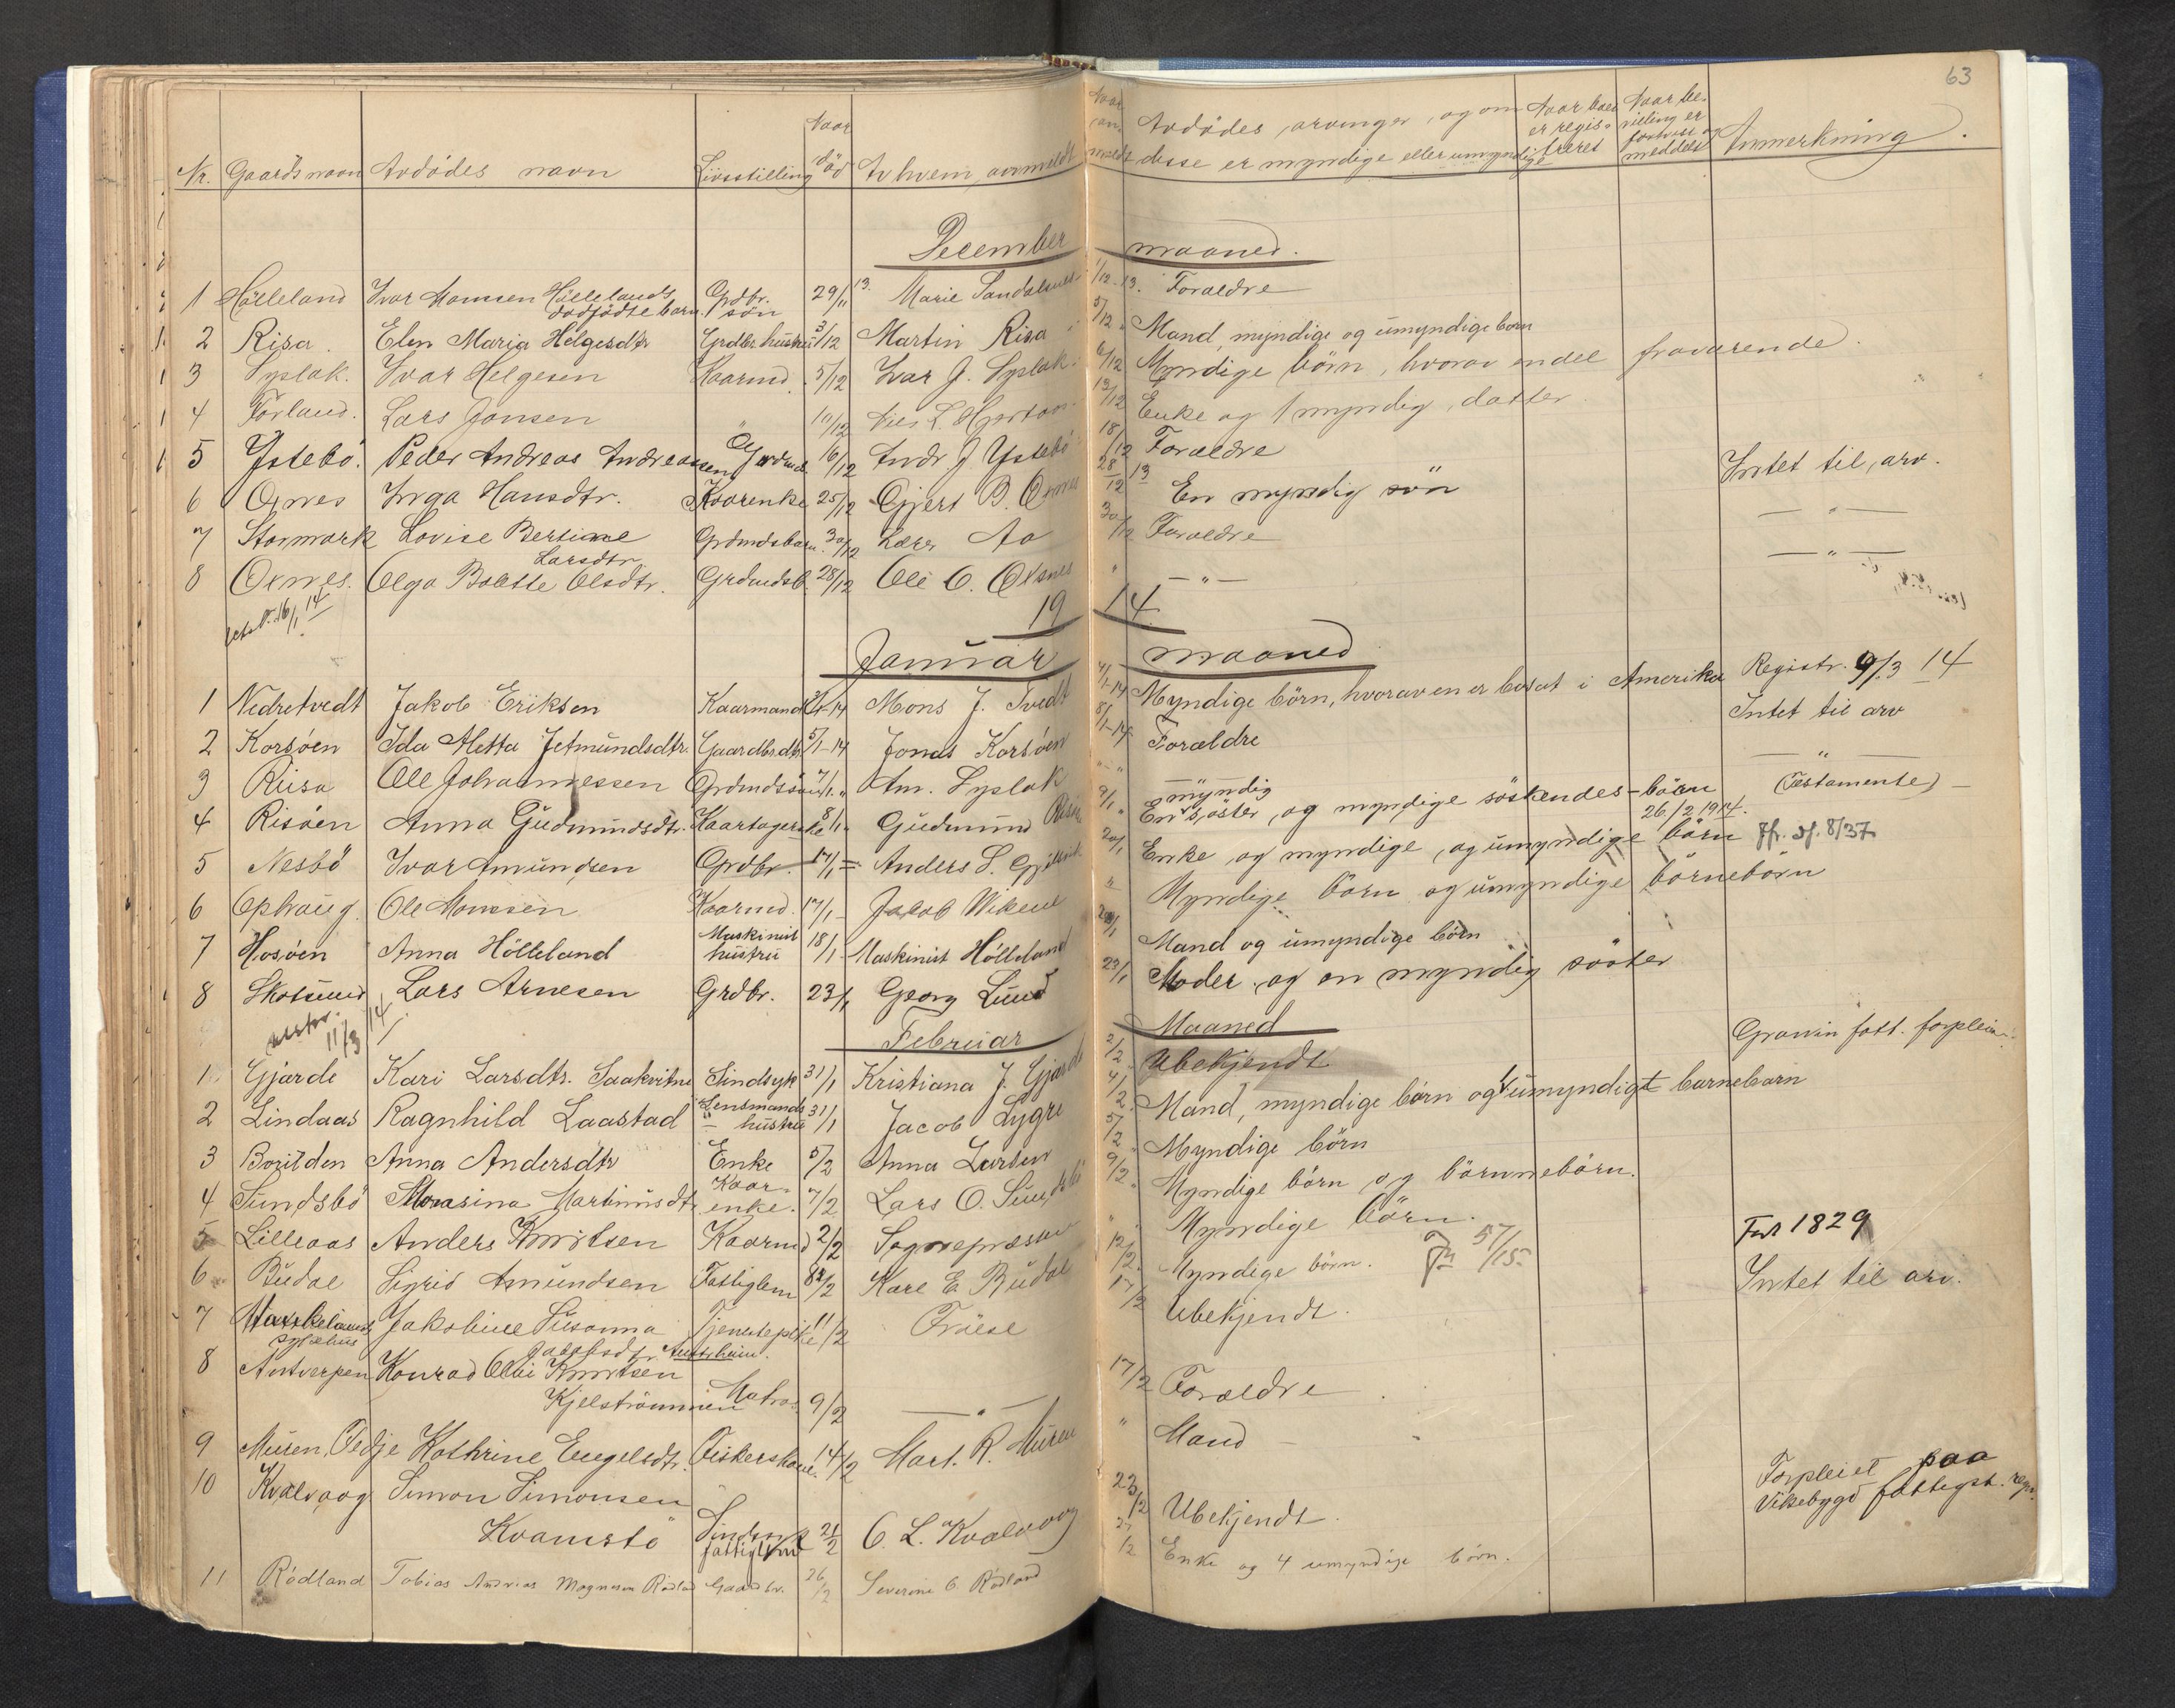 63
Nr. Gaards navn Avdödes navn Livsstilling Naar död Av hvem anmeldt Naar anmeldt Avdödes arvinger, og om disse er myndige eller umyndige Naar boet er registreret Naar bevilling er meddelt Anmerkning.
December maaned.
1 Hölleland Ivar Monsen Höllelands dödfödte barn Grdbr. sön 29/11 13. Marie Sandalsnes 1/12 13. Foraeldre
2 Risa. Elen Maria Helgesdtr Grdbr. hustru 3/12 Martin Risa 5/12 Mand, myndige og umyndige börn
3 Syslak. Ivar Helgesen Kaarmd. 5/12 Ivar J. Syslak. 6/12 Myndige börn, hvorav endel fraværende.
4 Förland. Lars Jansen " 10/12 Nils L. 13/12 Enke og 1 myndig datter.
5 Ystebö. Peder Andreas Andreassen 16/12 Andr. J. Ystebö 18/12 Foraeldre Intet til arv.
6 Oxnes Inga Hansdtr. Kaarenke 25/12 Gjert B. Oxnes 28/12 13 En myndig sön — " —
7 Stormark Lovise Bertine Larsdtr. Grdmdsbarn 30/12 Lars Aa 30/12 Foraeldre — " —
8 Oxnes. Olga Bolette Olsdtr. Grdmdsb. 28/12 Ole O. Oxnes " — " —
16/1 14
1914
Januar maaned
1 Nedretvedt Jakob Eriksen Kaarmand 1-14 Mons J. Tvedt 4/1-14 Myndige börn, hvorav en er bosat i Amerika Registr. 9/3 14
2 Korsöen Ida Aletta Jetmundsdtr. Gaardbrdtr. 5/1-14 Jonas Korsöen 8/1-14 Forældre Intet til arv
3 Riisa Ole Johannessen Grdmdssön 7/1 " Am. Syslak " " — " — — " —
4 Risöen Anna Gudmundsdtr. Kaartagerske 8/1 Gudmund Risöen 9/1 " En myndig söster, og myndige söskendes-börn (Testamente)
5 Nesbö Ivar Amundsen Grdbr. 17/1 — Anders S. 20/1 Enke og myndige, og umyndige börn 26/2 1914. Jfr. sf. 8/37
6 Ophaug. Ole Monsen Kaarmd. 17/1 - Jakob Vikene " Myndige börn og umyndige börnebörn
7 Hosöen Anna Hölleland Maskinist hustru 18/1 - Maskinist Hölleland Mand og umyndige börn
8 Skotsund Lars Arnesen Grdbr. 23/1 Georg Lund 23/1 Moder og en myndig söster
11/3 14
Februar Maaned
1 Gjærde Kari Larsdtr. Saakvitne Sindsyk 31/1 Kristiana J. Gjærde 2/2 Ubekjendt Gravin fatt. forplein.
2 Lindaas Ragnhild Laastad Lensmands hustru 31/1 Jacob Lygre 4/2 Mand, myndige börn og 1 umyndigt barnebarn
3 Boritden Anna Andersdtr Enke 5/2 Anna Larsen 5/2 Myndige börn
4 Sundsbö Monsina Martinusdtr. Kaarenke. 7/2 Lars O. Sundsbö 9/2 Myndige börn og börnnebörn.
5 Lilleaas Anders Knutsen Kaarmd 2/2 Sognepræsten " Myndige börn. Föd 1829
6 Budal Sigrid Amundsen Fattiglem 8/2 Karl E. Budal 12/2 Myndige börn. 5/15 Intet til arv.
7 Haukelands sykehus Jakobine Susanna Jacobsdtr. Austrheim. Tjenestepike 11/2 Fröese 17/2 Ubekjendt.
8 Antverpen Konrad Olai Knutsen Kjelströmmen Matros 9/2 — " — 17/2 Foraeldre
9 Muren, Fedje Kathrine Engelsdtr. Fiskerskone. 14/2 Mart. R. Muren " Mand
10 Kvalvaag Simon Simonsen Kvamstö Sindssyk fattiglem 21/2 O. L. Kvalvaag 23/2 Ubekjendt. Forpleiet paa Vikebygd fattigst. regn.
11 Rödland Tobias Andreas Magnesen Rödland Gaardbr. 26/2 Severine O. Rödland 27/2 Enke og 4 umyndige börn.